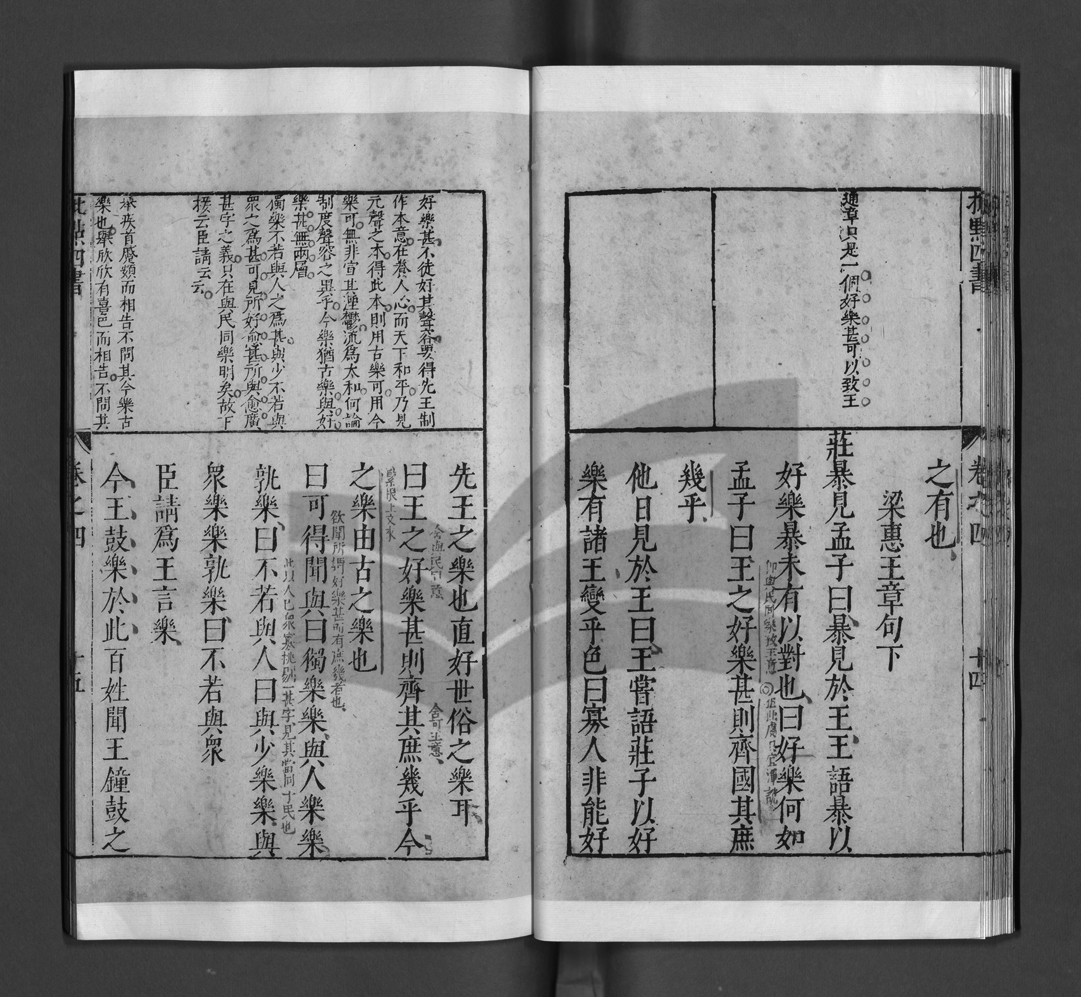 批點四書
卷之四
十四
通章只是一個好樂甚可以致王
之有也
梁惠王章句下
莊暴見孟子曰暴見於王王語暴以
好樂暴未有以對也曰好樂何如
孟子曰王之好樂甚則齊國其庶
幾乎
他日見於王曰王嘗語莊子以好
樂有諸王變乎色曰寡人非能好
好樂甚不徒好其聲容要得先王制
作本意在養人心而天下和平乃見
元聲之本得此本則用古樂可用今
樂可無非宣其湮鬱流為太和何論
制度聲容之異乎今樂猶古樂與好
樂甚無兩層
獨樂不若與人之為甚與少不若與
眾之為甚可見所好愈甚所與愈廣
甚字之義只在與民同樂明矣故下
接云臣請云云
舉疾首蹙頞而相告不問其今樂古
樂也舉欣欣有喜色而相告不問其
先王之樂也直好世俗之樂耳
含與民同意
含可王意
曰王之好樂甚則齊其庶幾乎今
之樂由古之樂也
欲聞所謂好樂甚而有庶幾者也
曰可得聞與曰獨樂樂與人樂樂
孰樂曰不若與人曰與少樂樂與
眾樂樂孰樂曰不若與眾
臣請為王言樂
今王鼓樂於此百姓聞王鐘鼓之
批點四書
卷之四
十五